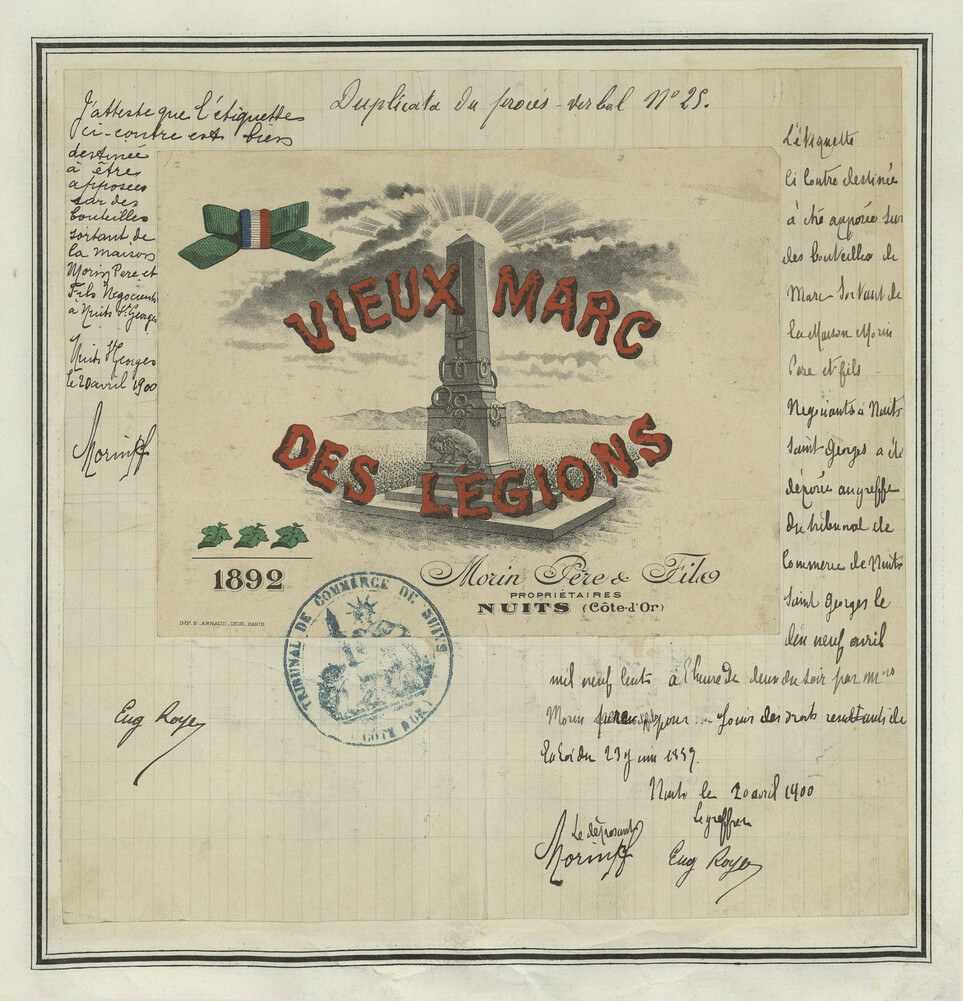 Duplicata du procès-verbal N° 25.
J'atteste que l'étiquette
ci-contre est bien
destinée
à être
apposée
sur des
bouteilles
sortant de
la maison
Morin Père et
Fils Négociants
à Nuits St Georges
Nuits St Georges
le 20 avril 1900
Morin Pf
VIEUX MARC
DES LÉGIONS
1892
Morin Père & Fils
PROPRIÉTAIRES
NUITS (Côte-d'Or)
IMP. B. ARNAUD, LYON, PARIS
TRIBUNAL DE COMMERCE DE NUITS
(CÔTE D'OR)
L'étiquette
ci contre destinée
à être apposée sur
des bouteilles de
Marc sortant de
la Maison Morin
Père et fils
Négociants à Nuits
Saint-Georges a été
déposée au greffe
du tribunal de
Commerce de Nuits
Saint Georges le
dix neuf avril
mil neuf cents à l'heure de deux du soir par Mrs
Morin pour jouir des droits résultants de
la Loi du 23 juin 1857.
Nuits le 20 avril 1900
Le déposant
Le greffier
Morin Pf
Eug Royer
Eug Royer